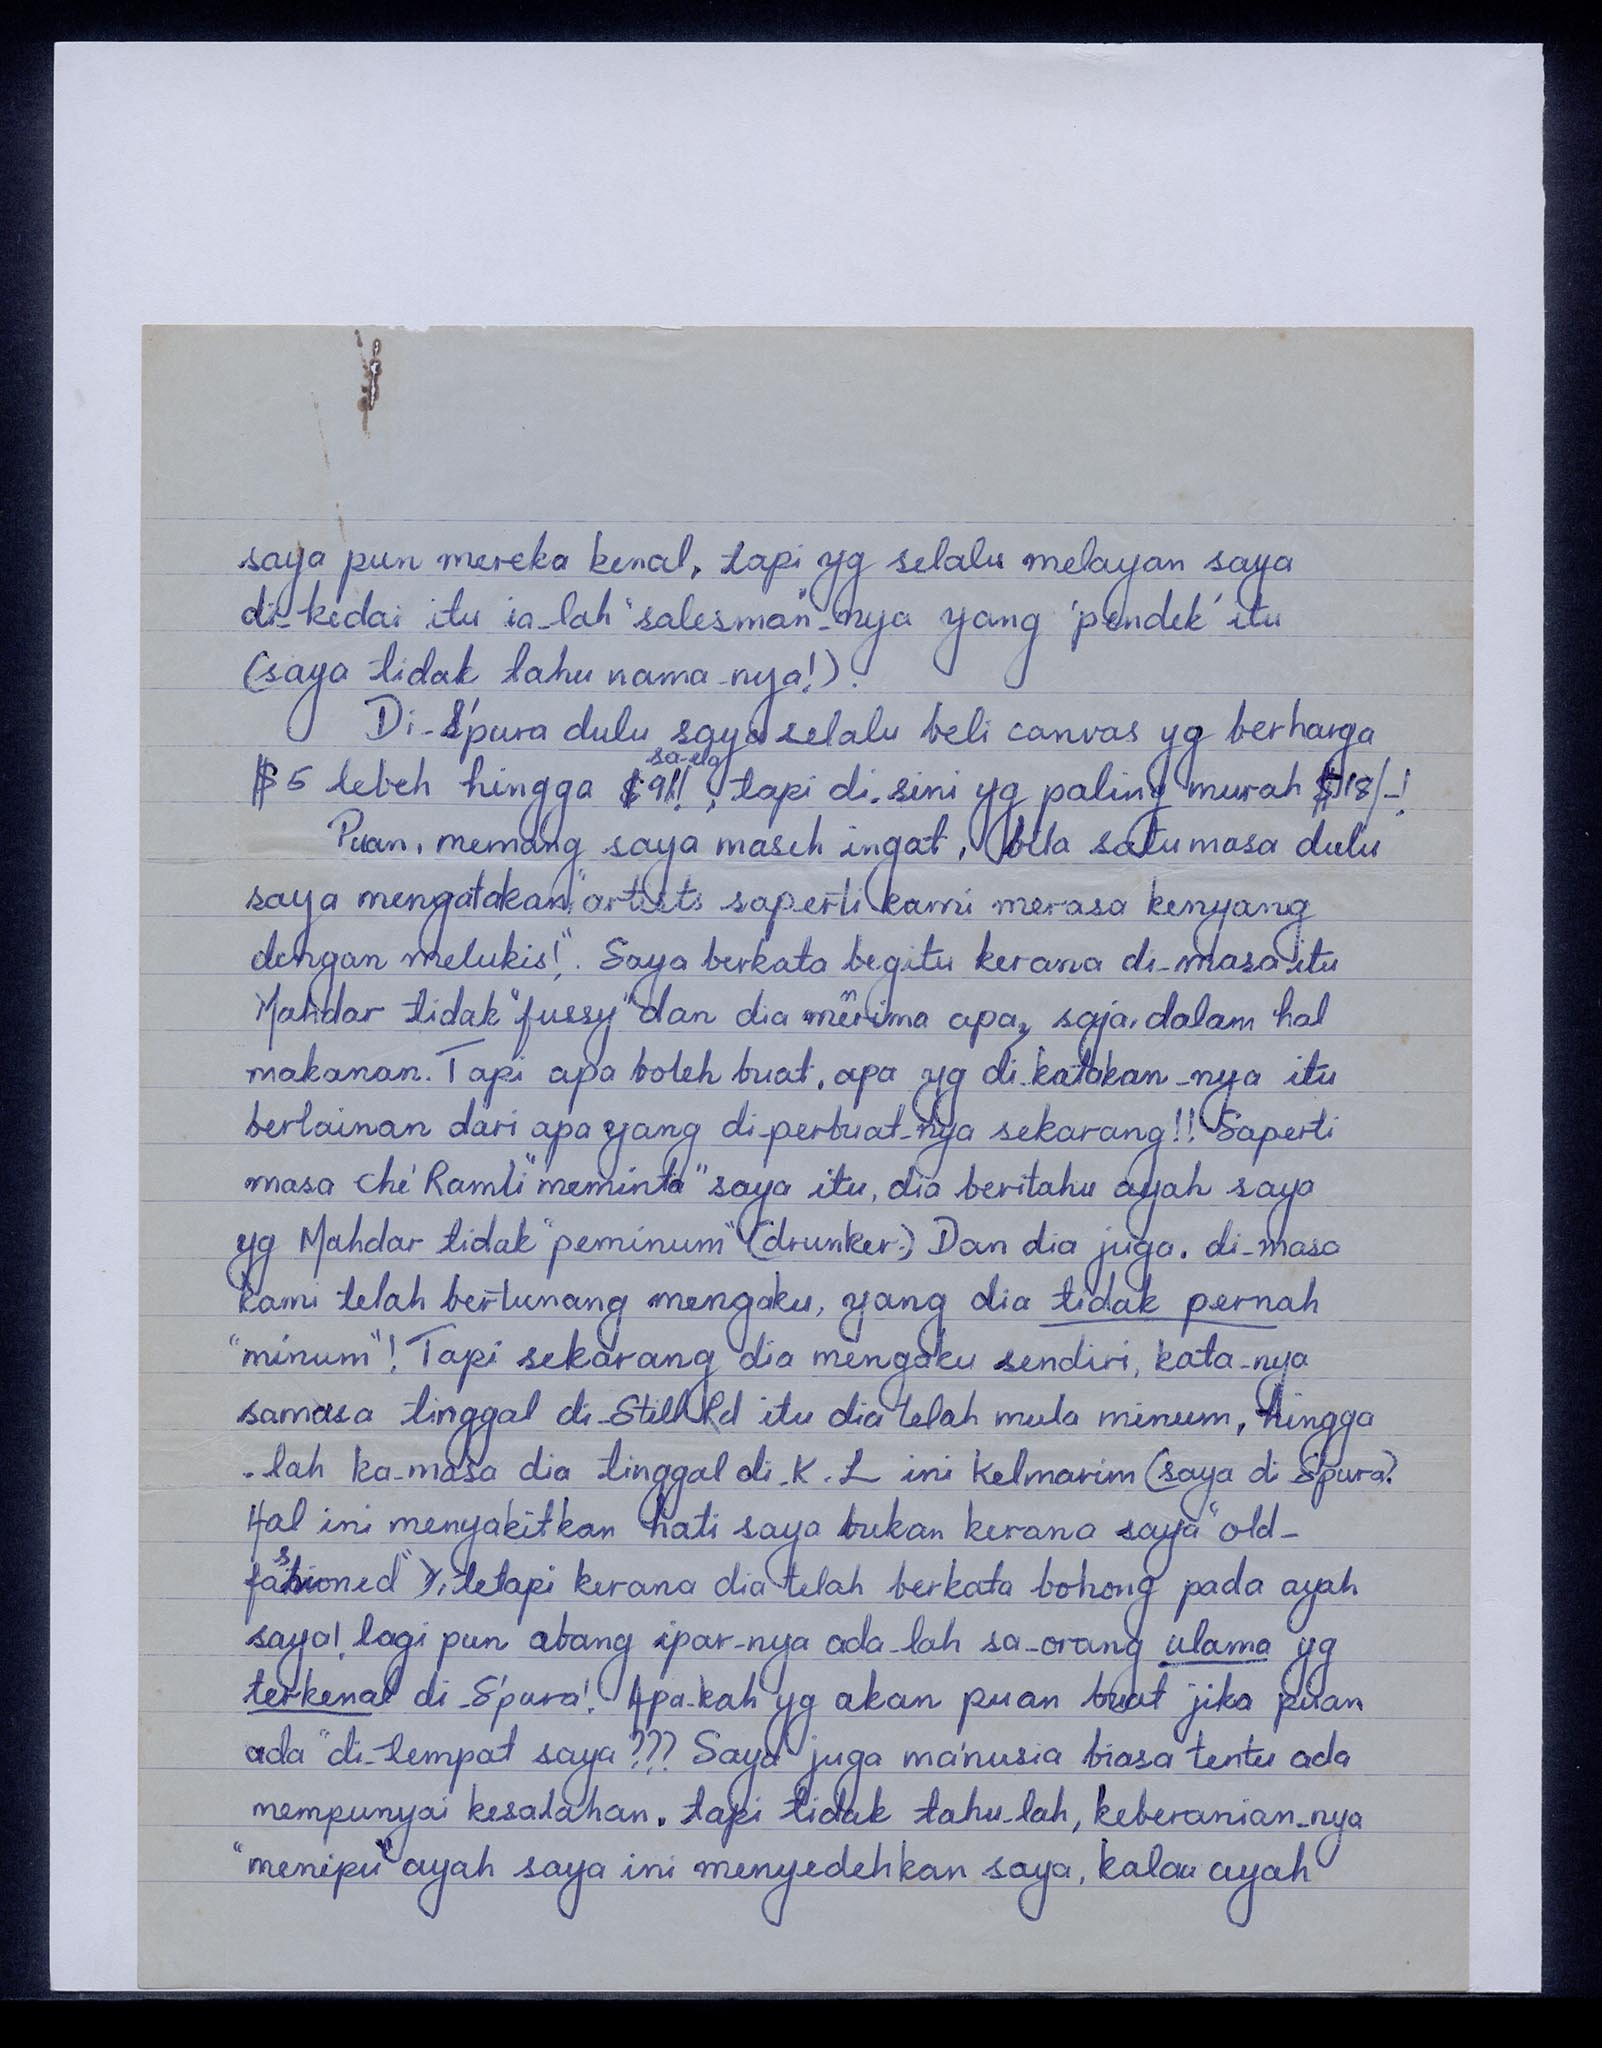 saya pun mereka kenal, tapi yg selalu melayan saya
di-kedai itu ia-lah "salesman"-nya yang 'pendek' itu
(saya tidak tahu nama-nya!).
Di-S'pura dulu saya selalu beli canvas yg berharga
sa-ela
$5 lebeh hingga $9!!, tapi di-sini yg paling murah $18/-!
Puan, memang saya maseh ingat, bila satu masa dulu
saya mengatakan "artists saperti kami merasa kenyang
dengan melukis!". Saya berkata begitu kerana di-masa itu
Mahdar tidak "fussy" dan dia menrima apa2 saja, dalam hal
makanan. Tapi apa boleh buat, apa yg di-katakan-nya itu
berlainan dari apa yang di-perbuat-nya sekarang!! Saperti
masa Che' Ramli "meminta" saya itu, dia beritahu ayah saya
yg Mahdar tidak "peminum" (drunker.) Dan dia juga, di-masa
kami telah bertunang mengaku, yang dia tidak pernah
"minum"! Tapi sekarang dia mengaku sendiri, kata-nya
samasa tinggal di-Still Rd itu dia telah mula minum, hingga
-lah ka-masa dia tinggal di-K.L ini kelmarim (saya di S'pura).
Hal ini menyakitkan hati saya bukan kerana saya "old-
fashioned"), tetapi kerana dia telah berkata bohong pada ayah
saya! lagi pun abang ipar-nya ada-lah sa-orang ulama yg
terkenal di-S'pura! Apa-kah yg akan puan buat jika puan
ada "di-tempat saya"??? Saya juga ma'nusia biasa tentu ada
mempunyai kesalahan. tapi tidak tahu-lah, keberanian-nya
"menipu" ayah saya ini menyedehkan saya, kalau ayah